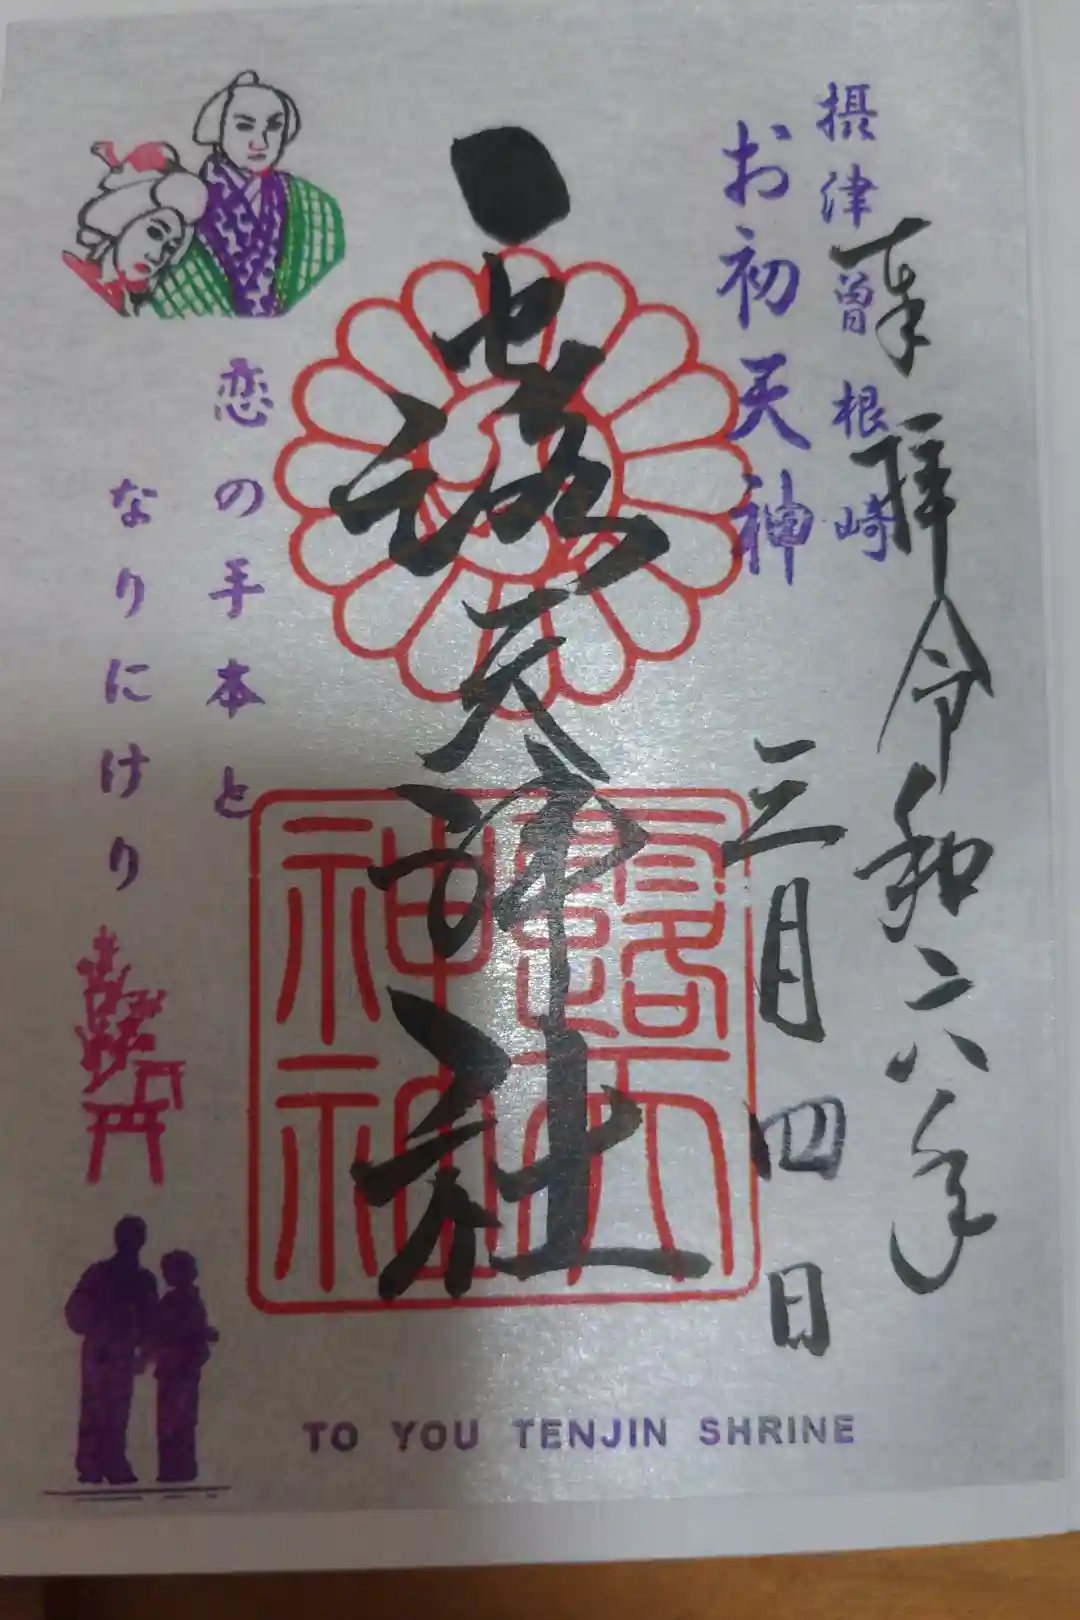 奉拝
令和六年
三月四日
摂津曽根崎
お初天神
露天神社
露天神社
恋の手本と
なりにけり
TO YOU TENJIN SHRINE